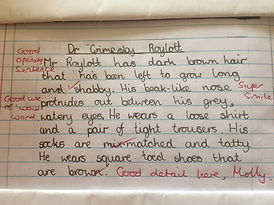 Dr Grimesby Roylott
Good opening sentence
Mr Roylott has dark brown hair
that has been left to grow long
and shabby. His beak-like nose
Super Simile
Good use of word
protrudes out between his grey,
watery eyes. He wears a loose shirt
and a pair of tight trousers. His
socks are mix-matched and tatty.
He wears square toed shoes that
are brown. Good detail here, Molly.